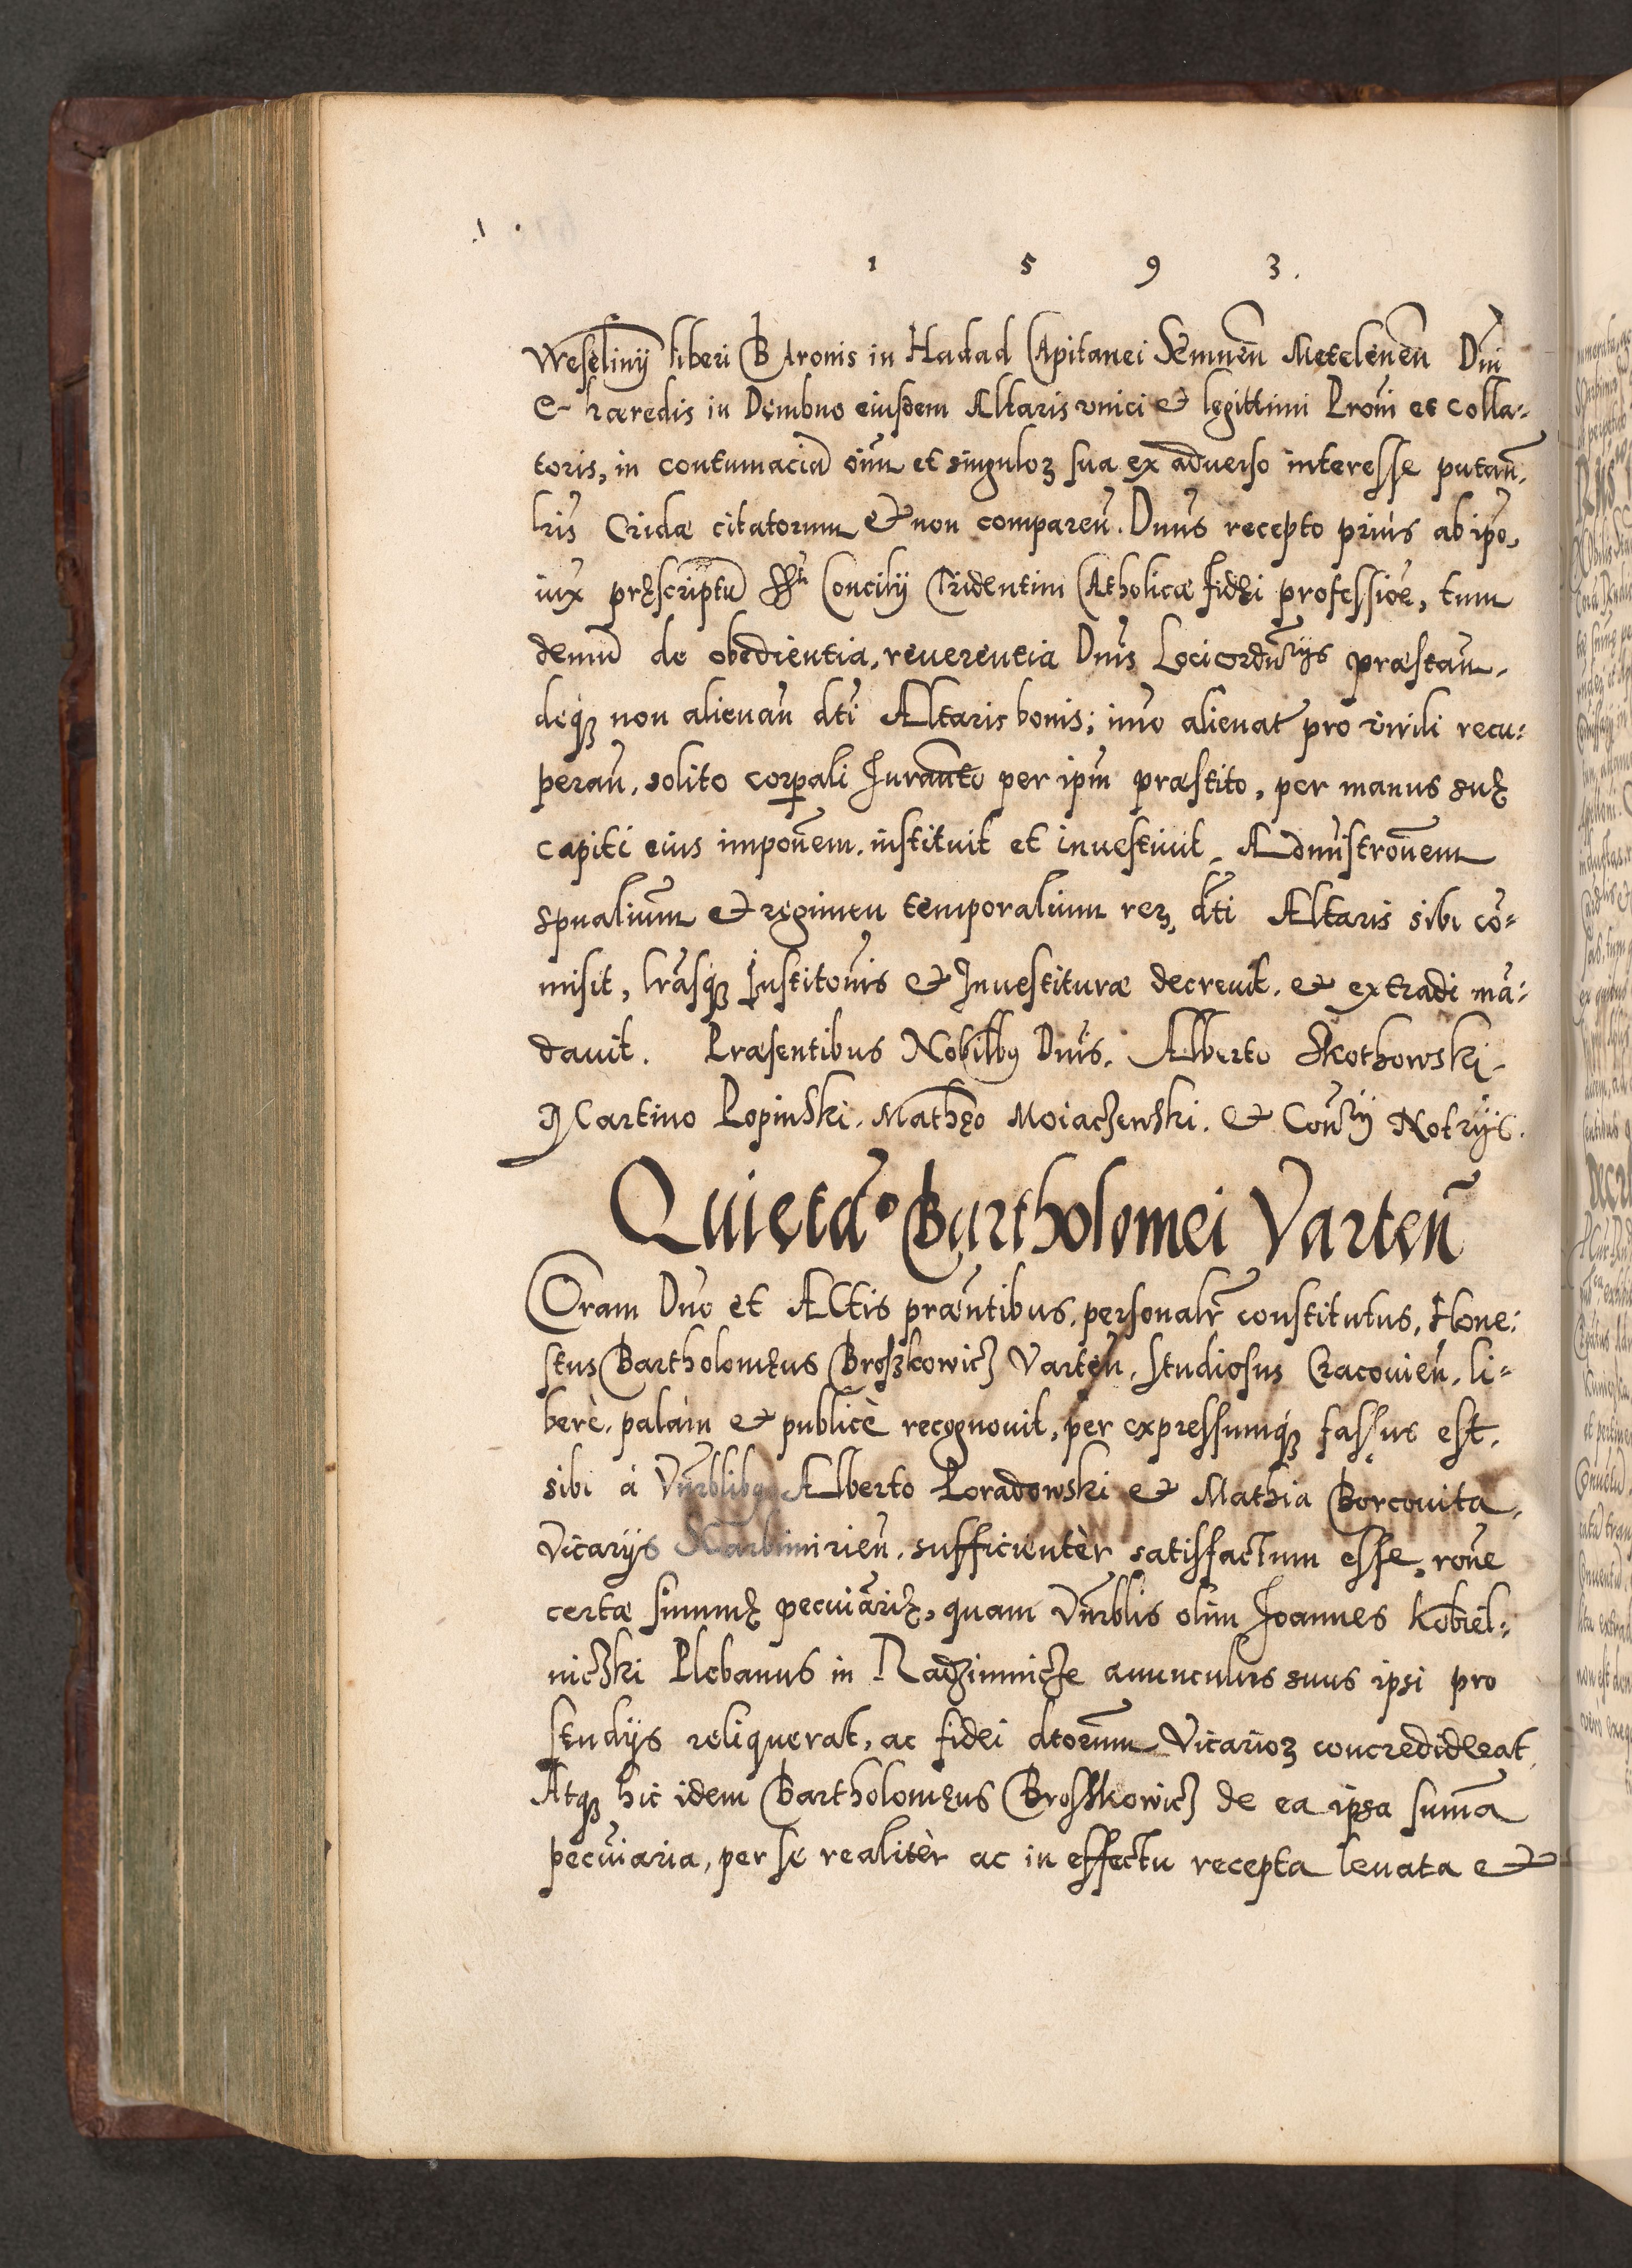 1 5 9 3.
Weselinÿ liberi Baronis in Hadad Capitanei Semneñ Meteleneñ Dni
& hæredis in Dembno eiusdem Altaris vnici & legittimi Proni et colla=
toris, in contumaciã oim et singuloꝝ sua ex adverso interesse putañ.
lris Cridæ citatorum & non compareñ. Dnus recepto priùs ab ipo,
iux pręscriptũ Concilij Tridentini Catholicæ fidęi professiõe, tum
demũ de obedientia, reuerentia Dnis Locicordnrijs præstañ.
deqꝫ non alienañ dti Altaris bonis; imo alienat pro virili recu=
perañ, solito corꝑali Iuramto per ipm præstito, per manus suę
capiti eius imponem. instituit et inuestiuit. Admistrõnem
spualium & regimen temporalium reꝝ dti Altaris sibi cõ=
misit, lrasqꝫ Institõnis & Inuestituræ decreuit. & extradi mã=
dauit. Præsentibus Nobilbꝯ Dnis. Alberto Skothowski.
Martino Lopinski. Mathęo Moiaczewski. & Conrÿ Notrijs.
Quietã° Bartholomei Varteñ
Coram Dno et Actis præntibus, personalr constitutus, Hone=
stus Bartholomęus Broszkowicz Varteñ, studiosus Cracouieñ, li=
berè, palàm & publicè recognouit, per expressumqꝫ fassus est.
sibi à Vnrblibꝯ Alberto Poradowski & Mathia Borcouita.
Vicarijs Skarbimirieñ, sufficientèr satisfactum esse, rõne
certæ summę pecuniarię, quam Vnrblis olim Joannes Kobiel=
niczki Plebanus in Radzimnicze auunculus suus ipsi pro
studijs reliquerat, ac fidei dtorum Vicarioꝝ concrediderat.
Atqꝫ hic idem Bartholomęus Broszkowicz de ea ipsa sum̃a
pecũiaria, per se realitèr ac in effectu recepta leuata &